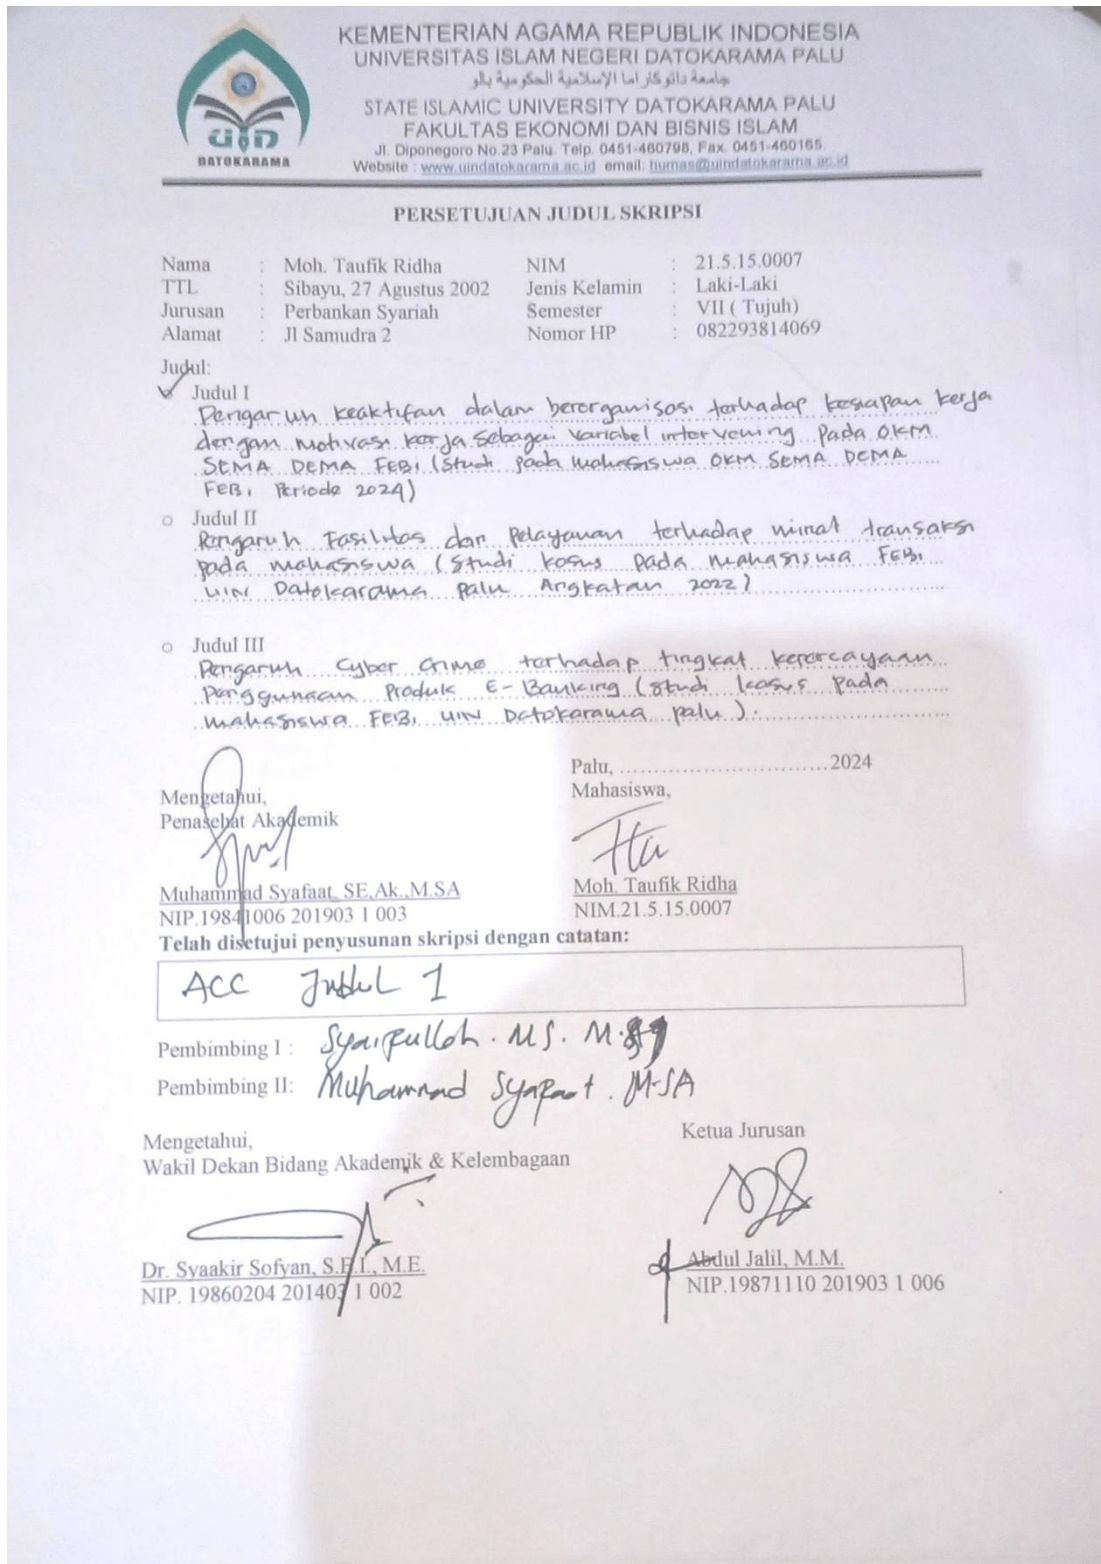 KEMENTERIAN AGAMA REPUBLIK INDONESIA
UNIVERSITAS ISLAM NEGERI DATOKARAMA PALU
جامعة داتوكاراما الإسلامية الحكومية بالو
STATE ISLAMIC UNIVERSITY DATOKARAMA PALU
FAKULTAS EKONOMI DAN BISNIS ISLAM
Jl. Diponegoro No.23 Palu. Telp. 0451-460798, Fax. 0451-460165.
Website : www.uindatokarama.ac.id email: humas@uindatokarama.ac.id
UIN
DATOKARAMA
PERSETUJUAN JUDUL SKRIPSI
Nama : Moh. Taufik Ridha NIM : 21.5.15.0007
TTL : Sibayu, 27 Agustus 2002 Jenis Kelamin : Laki-Laki
Jurusan : Perbankan Syariah Semester : VII ( Tujuh)
Alamat : Jl Samudra 2 Nomor HP : 082293814069
Judul:
Judul I
Pengaruh keaktifan dalam berorganisasi terhadap kesiapan kerja
dengan motivasi kerja sebagai variabel intervening pada OKM
SEMA DEMA FEBI (Studi pada mahasiswa OKM SEMA DEMA
FEBI Periode 2024)
Judul II
Pengaruh Fasilitas dan Pelayanan terhadap minat transaksi
pada mahasiswa (Studi kasus pada mahasiswa FEBI
UIN Datokarama palu Angkatan 2022)
Judul III
Pengaruh Cyber Crime terhadap tingkat kepercayaan
Penggunaan Produk E-Banking (Studi kasus pada
mahasiswa FEBI UIN Datokarama palu).
Palu, ..............................2024
Mengetahui, Mahasiswa,
Penasehat Akademik
Muhammad Syafaat, SE,Ak.,M.SA Moh. Taufik Ridha
NIP.19841006 201903 1 003 NIM.21.5.15.0007
Telah disetujui penyusunan skripsi dengan catatan:
ACC Judul 1
Pembimbing I : Syaifulloh. MS.
Pembimbing II: Muhammad Syafaat. M.SA
Mengetahui, Ketua Jurusan
Wakil Dekan Bidang Akademik & Kelembagaan
Dr. Syaakir Sofyan, S.E.I., M.E. Abdul Jalil, M.M.
NIP. 19860204 201403 1 002 NIP.19871110 201903 1 006